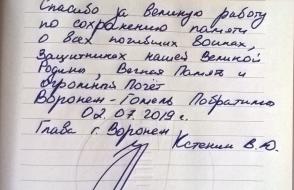 Спасибо за великую работу
по сохранению памяти
о всех погибших воинах,
Защитниках нашей Великой
Родины, Вечная Память и
огромный Почёт
Воронеж-Гомель Побратимы
02.07.2019г.
Глава г. Воронеж
Кстенин В.Ю.